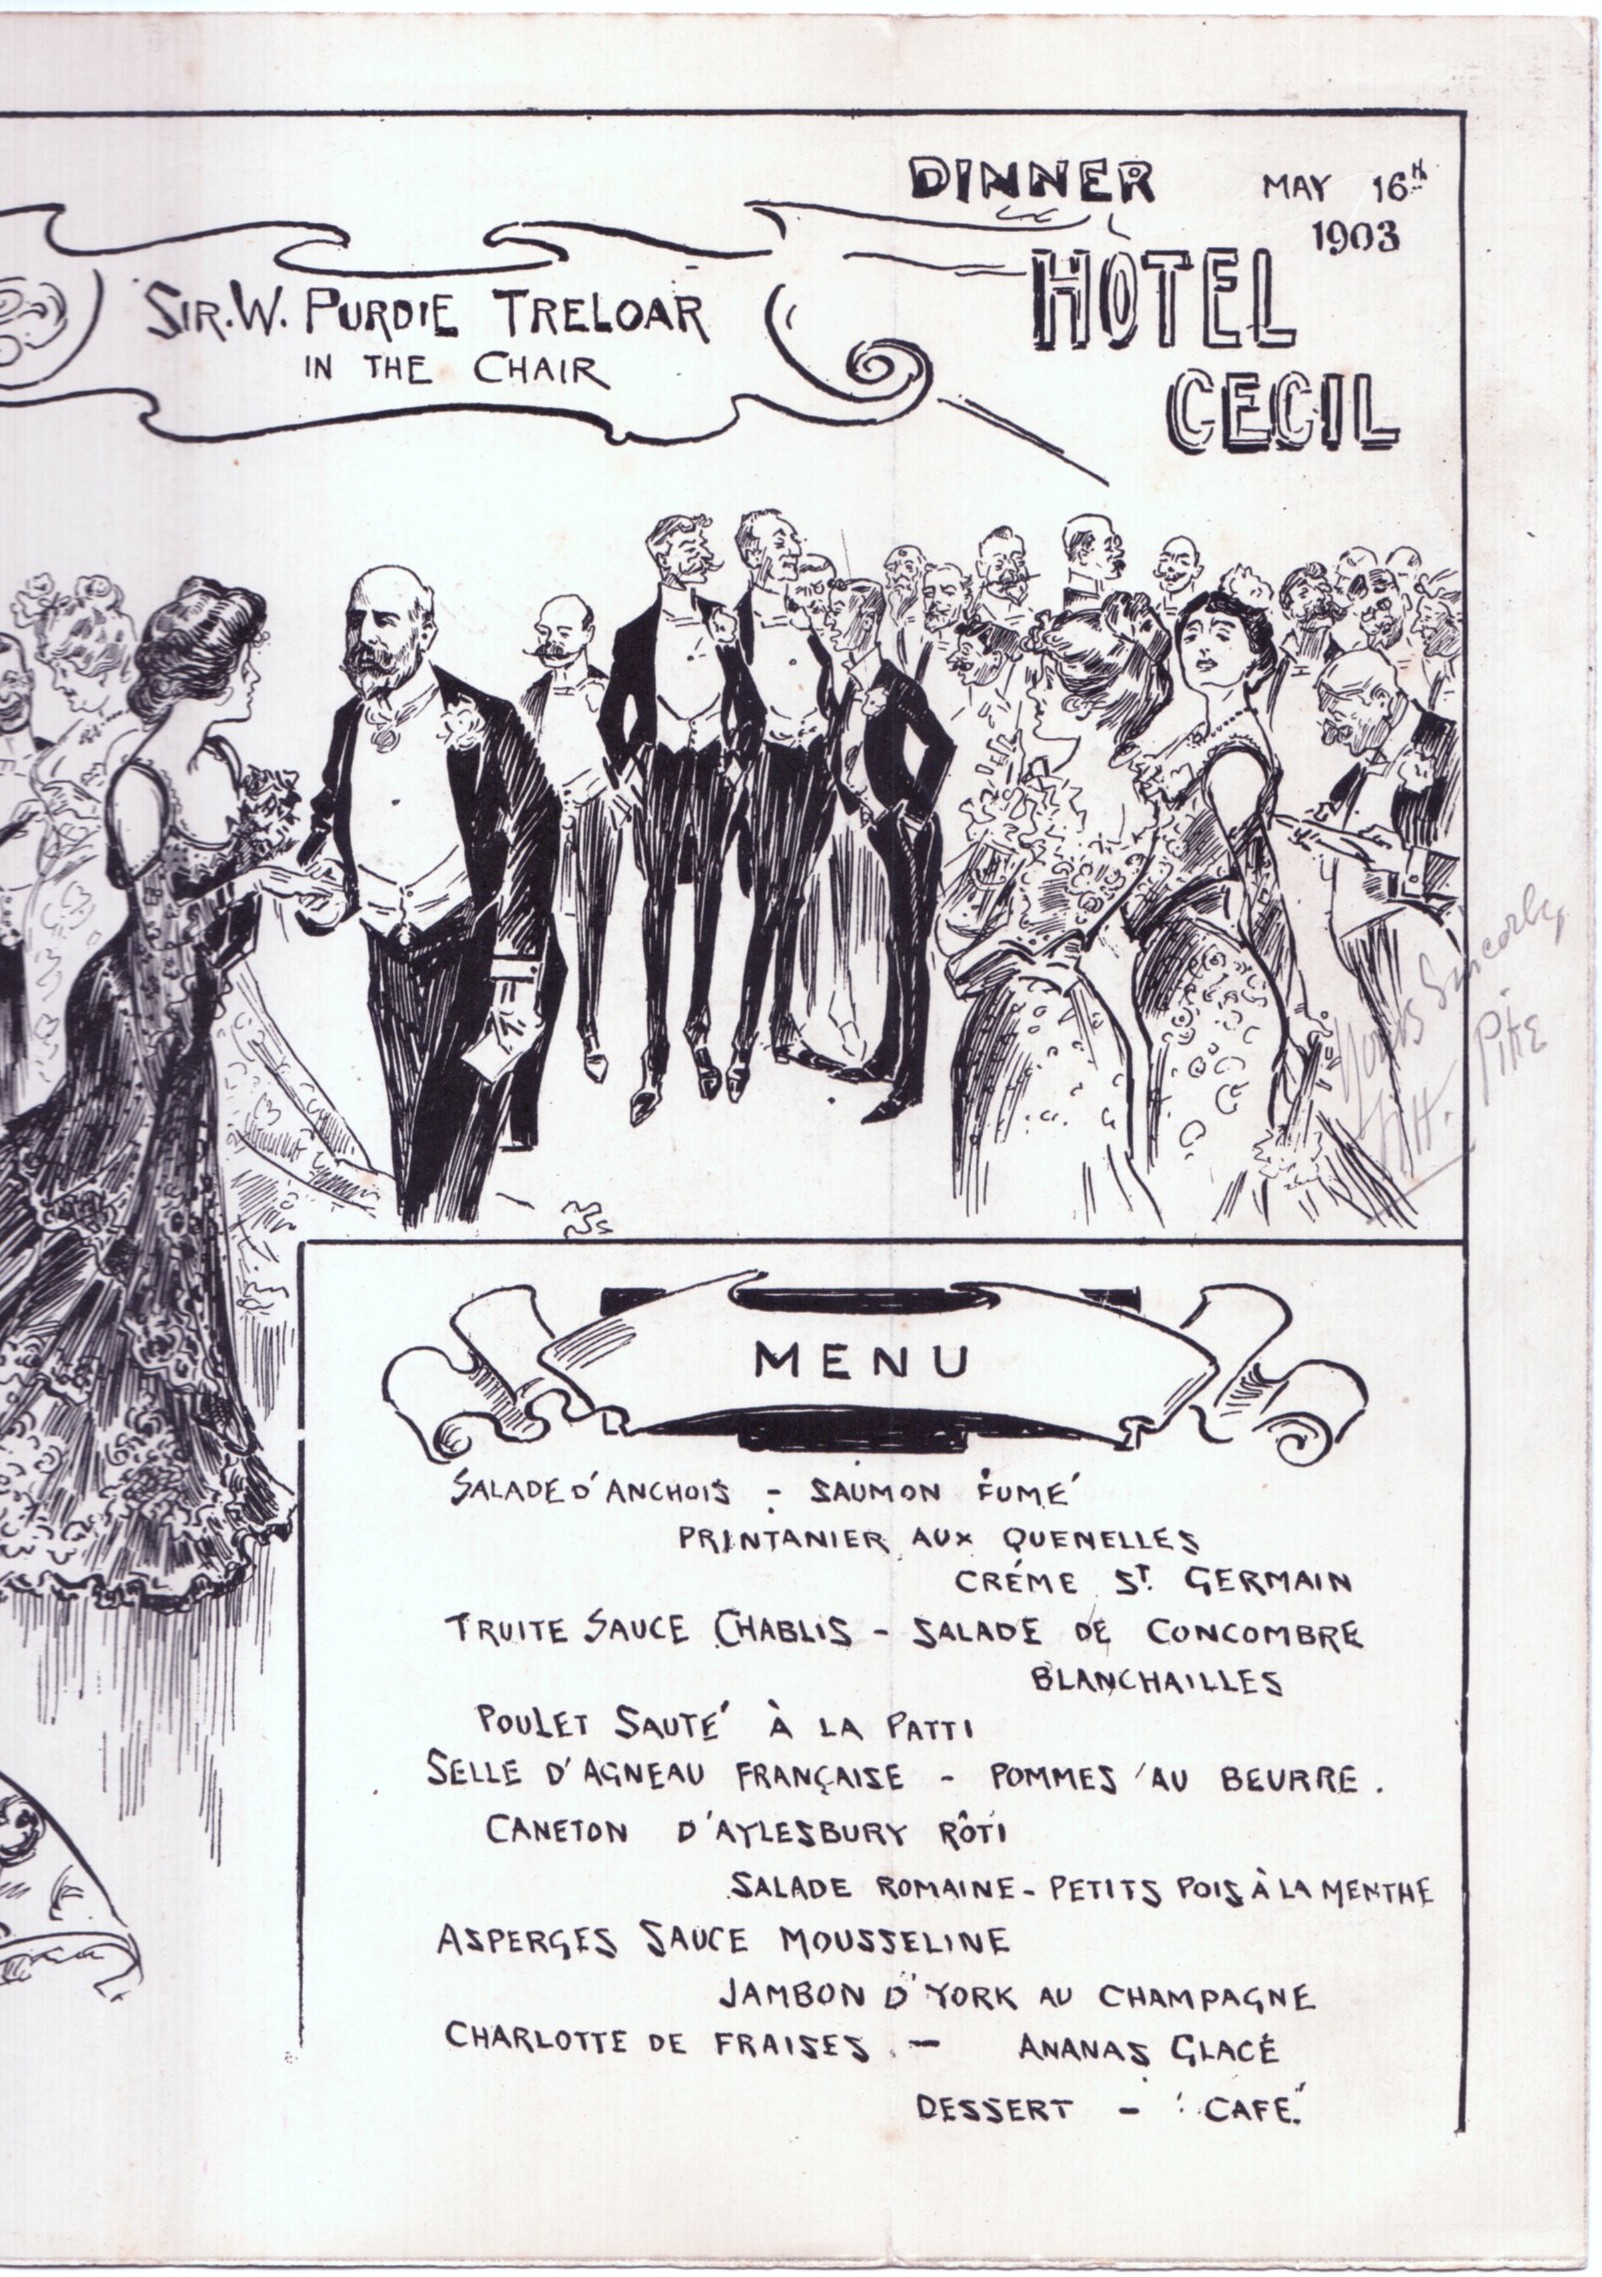 DINNER MAY 16TH
1903
HÔTEL
CECIL
SIR. W. PURDIE TRELOAR
IN THE CHAIR
Yours Sincerely
Pike
MENU
SALADE D'ANCHOIS - SAUMON FUMÉ
PRINTANIER AUX QUENELLES
CRÉME ST. GERMAIN
TRUITE SAUCE CHABLIS - SALADE DE CONCOMBRE
BLANCHAILLES
POULET SAUTÉ À LA PATTI
SELLE D'AGNEAU FRANÇAISE - POMMES AU BEURRE.
CANETON D'AYLESBURY RÔTI
SALADE ROMAINE - PETITS POIS À LA MENTHE
ASPERGES SAUCE MOUSSELINE
JAMBON D'YORK AU CHAMPAGNE
CHARLOTTE DE FRAISES - ANANAS GLACÉ
DESSERT - CAFÉ.